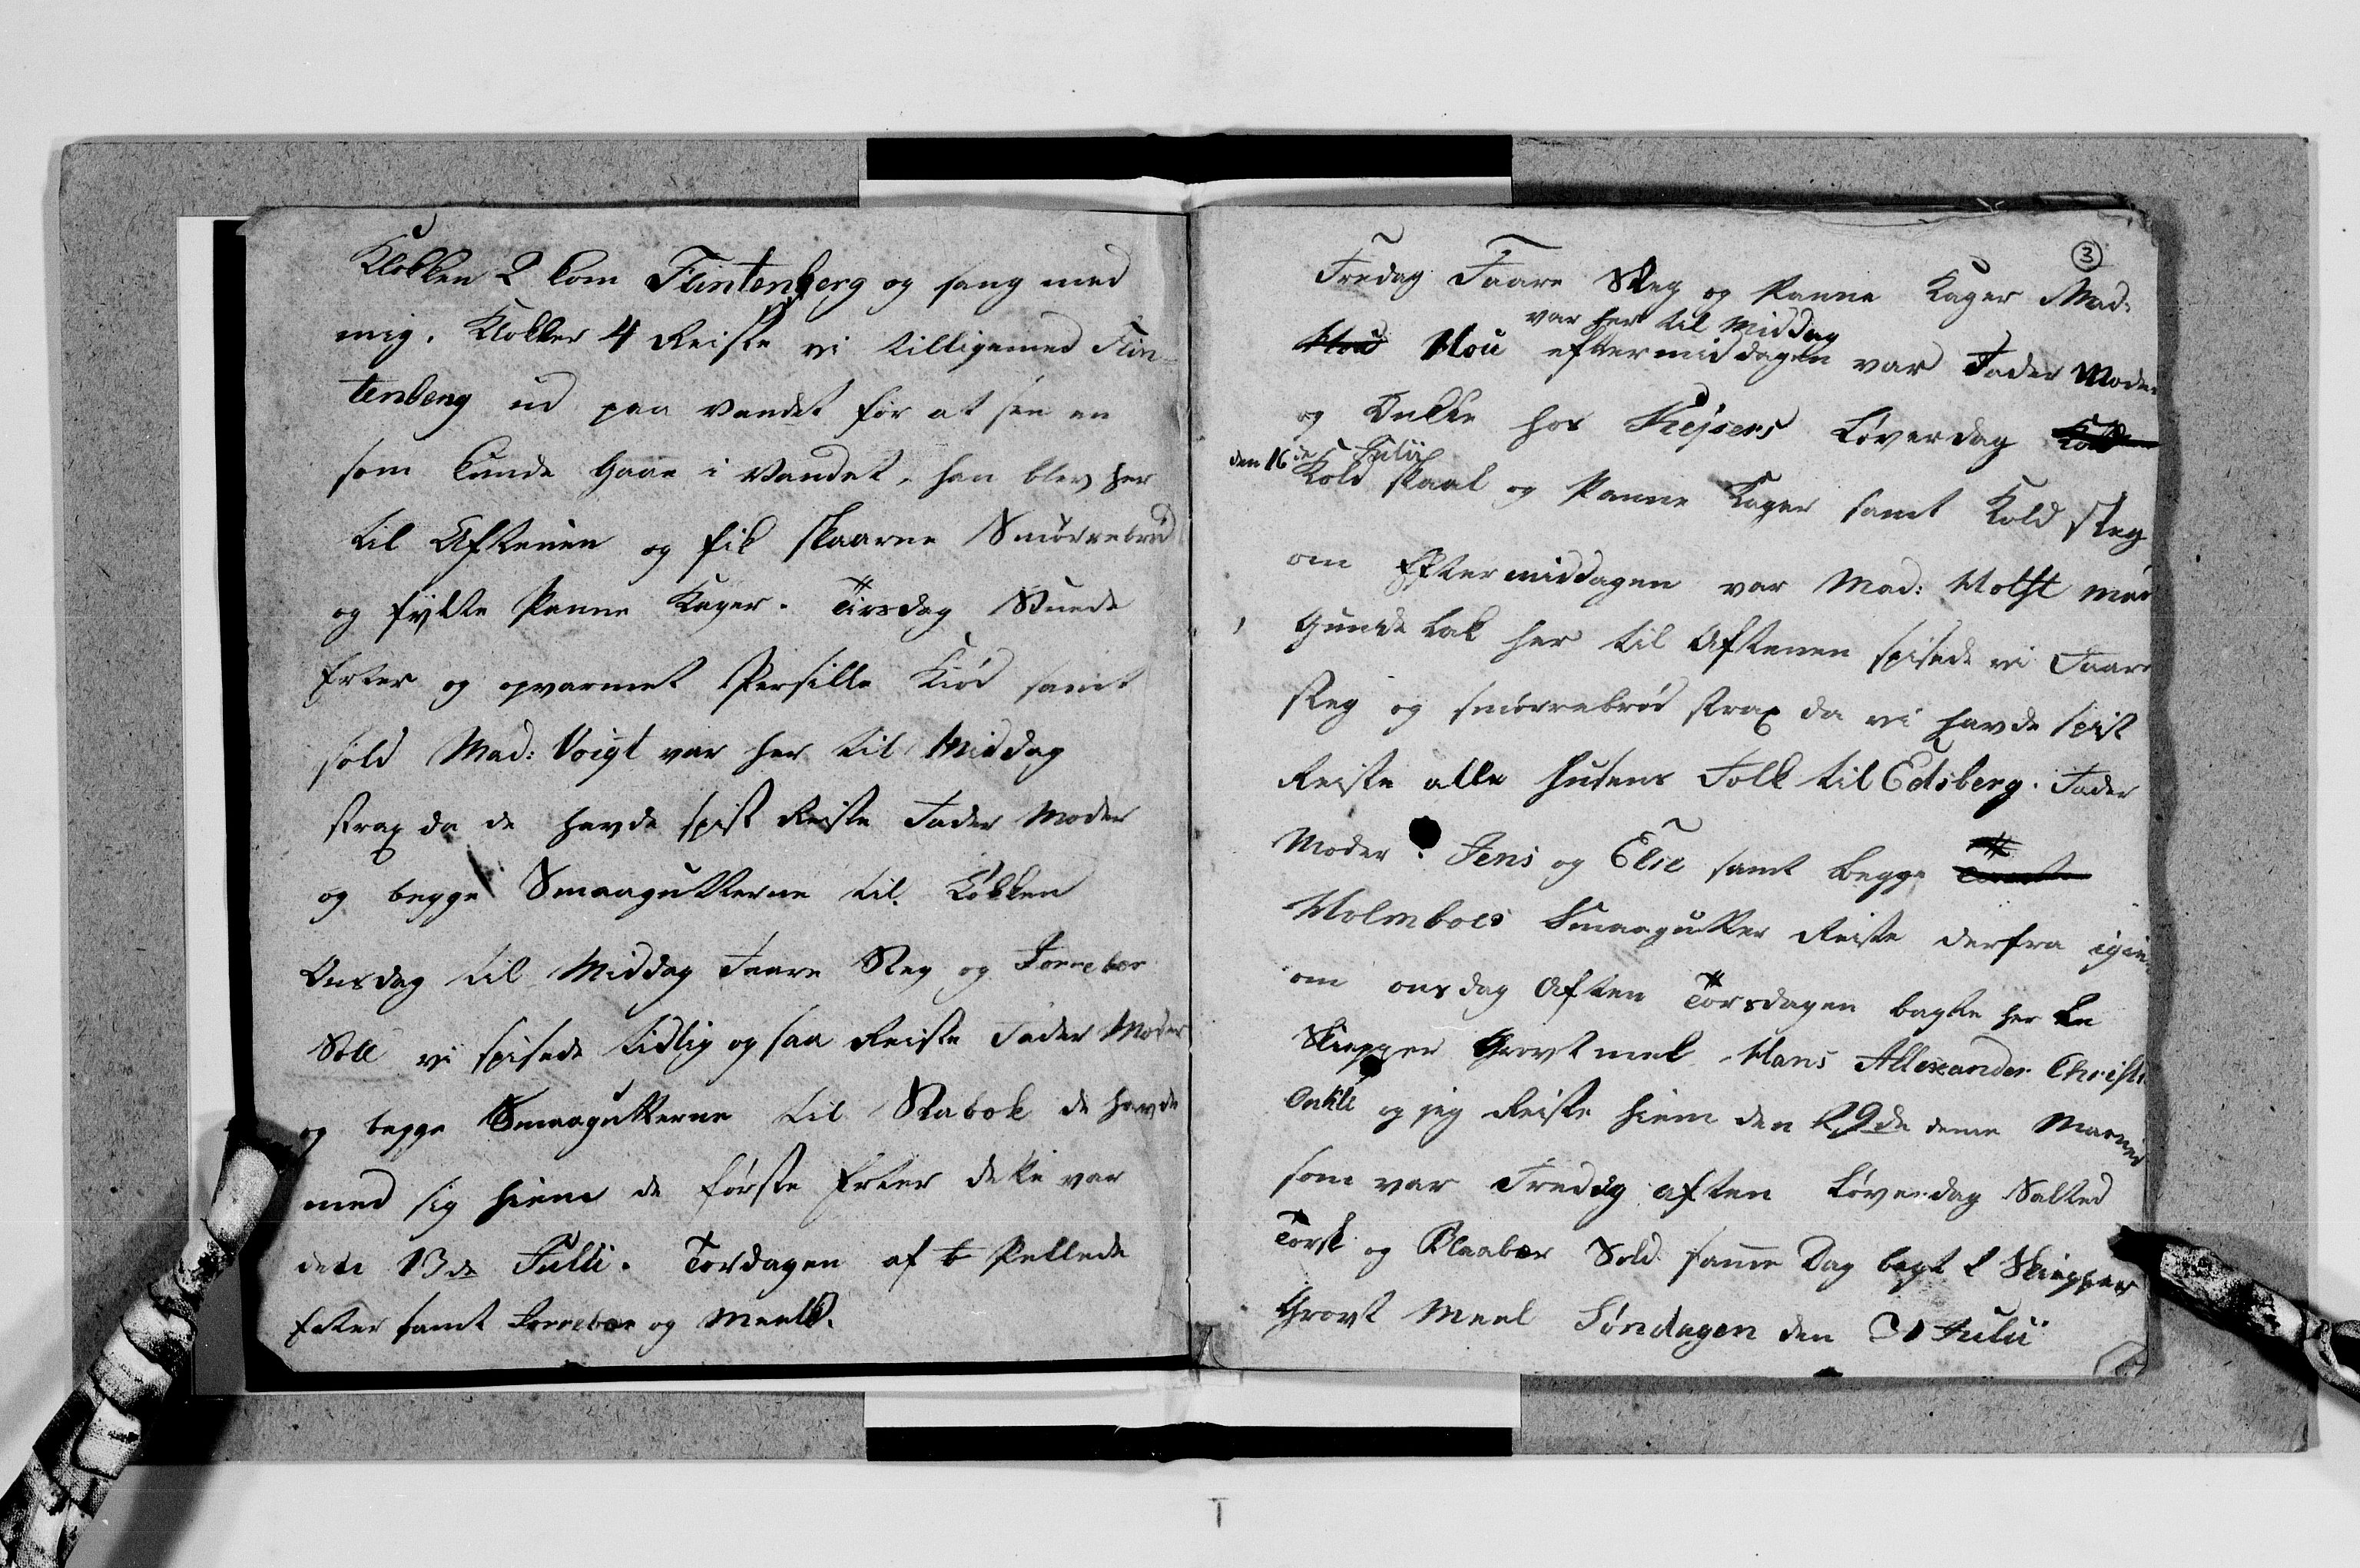 Klokken 2 kom Flintenberg og sang med
mig. Klokker 4 Reiste vi tilligemed Flin-
tenberg ud paa Vandet for at see en
som kunde Gaae i Vandet, han blev her
til Aftenen og fik skaarne Smørrebrød
og fylte Panne Kager. Tirsdag Stuede
Erter og opvarmet Persille Kiød samt
sold Mad: Voigt var her til Middag
strax da de havde spist Reiste Fader Moder
og begge Smaagutterne til Løkken
Onsdag til Middag Faare Steg og Jorrebær
Soll vi spisede tidlig og saa Reiste Fader Moder
og begge Smaagutterne til Stabok de havde
med sig hiem de første Erter dette var
den 13de Julli. Tordagen af t Pellede
Erter samt Jorrebær og Meelk.
3
Fredag Faare Steg og Panne Kager Mad:
var her til Middag
Hou Hou eftermiddagen var Fader Moder
og Onkle hos Keÿsers Løverdag Kold
den 16de Julii
Kold skaal og Panne Kager samt Kold Steg
om Eftermiddagen var Mad: Holst med
Gunde bak her til Aftenen spisede vi Faare
steg og smørrebrød strax da vi havde spist
Reiste alle husens Folk til Edsberg. Fader
Moder. Jens og Elie samt begge
Holmboes Smaagutter Reiste derfra igien
om onsdag Aften Torsdagen bagte her en
Skiepper Grovt mel Hans Allexander Christi
Onkle og jeg Reiste hiem den 29de denne Maaned
som var Fredag aften Løverdag Salted
Torsk og Blaabær Sold samme Dag bagt 2 Skiepper
Grovt Meel Søndagen den 31 Julii